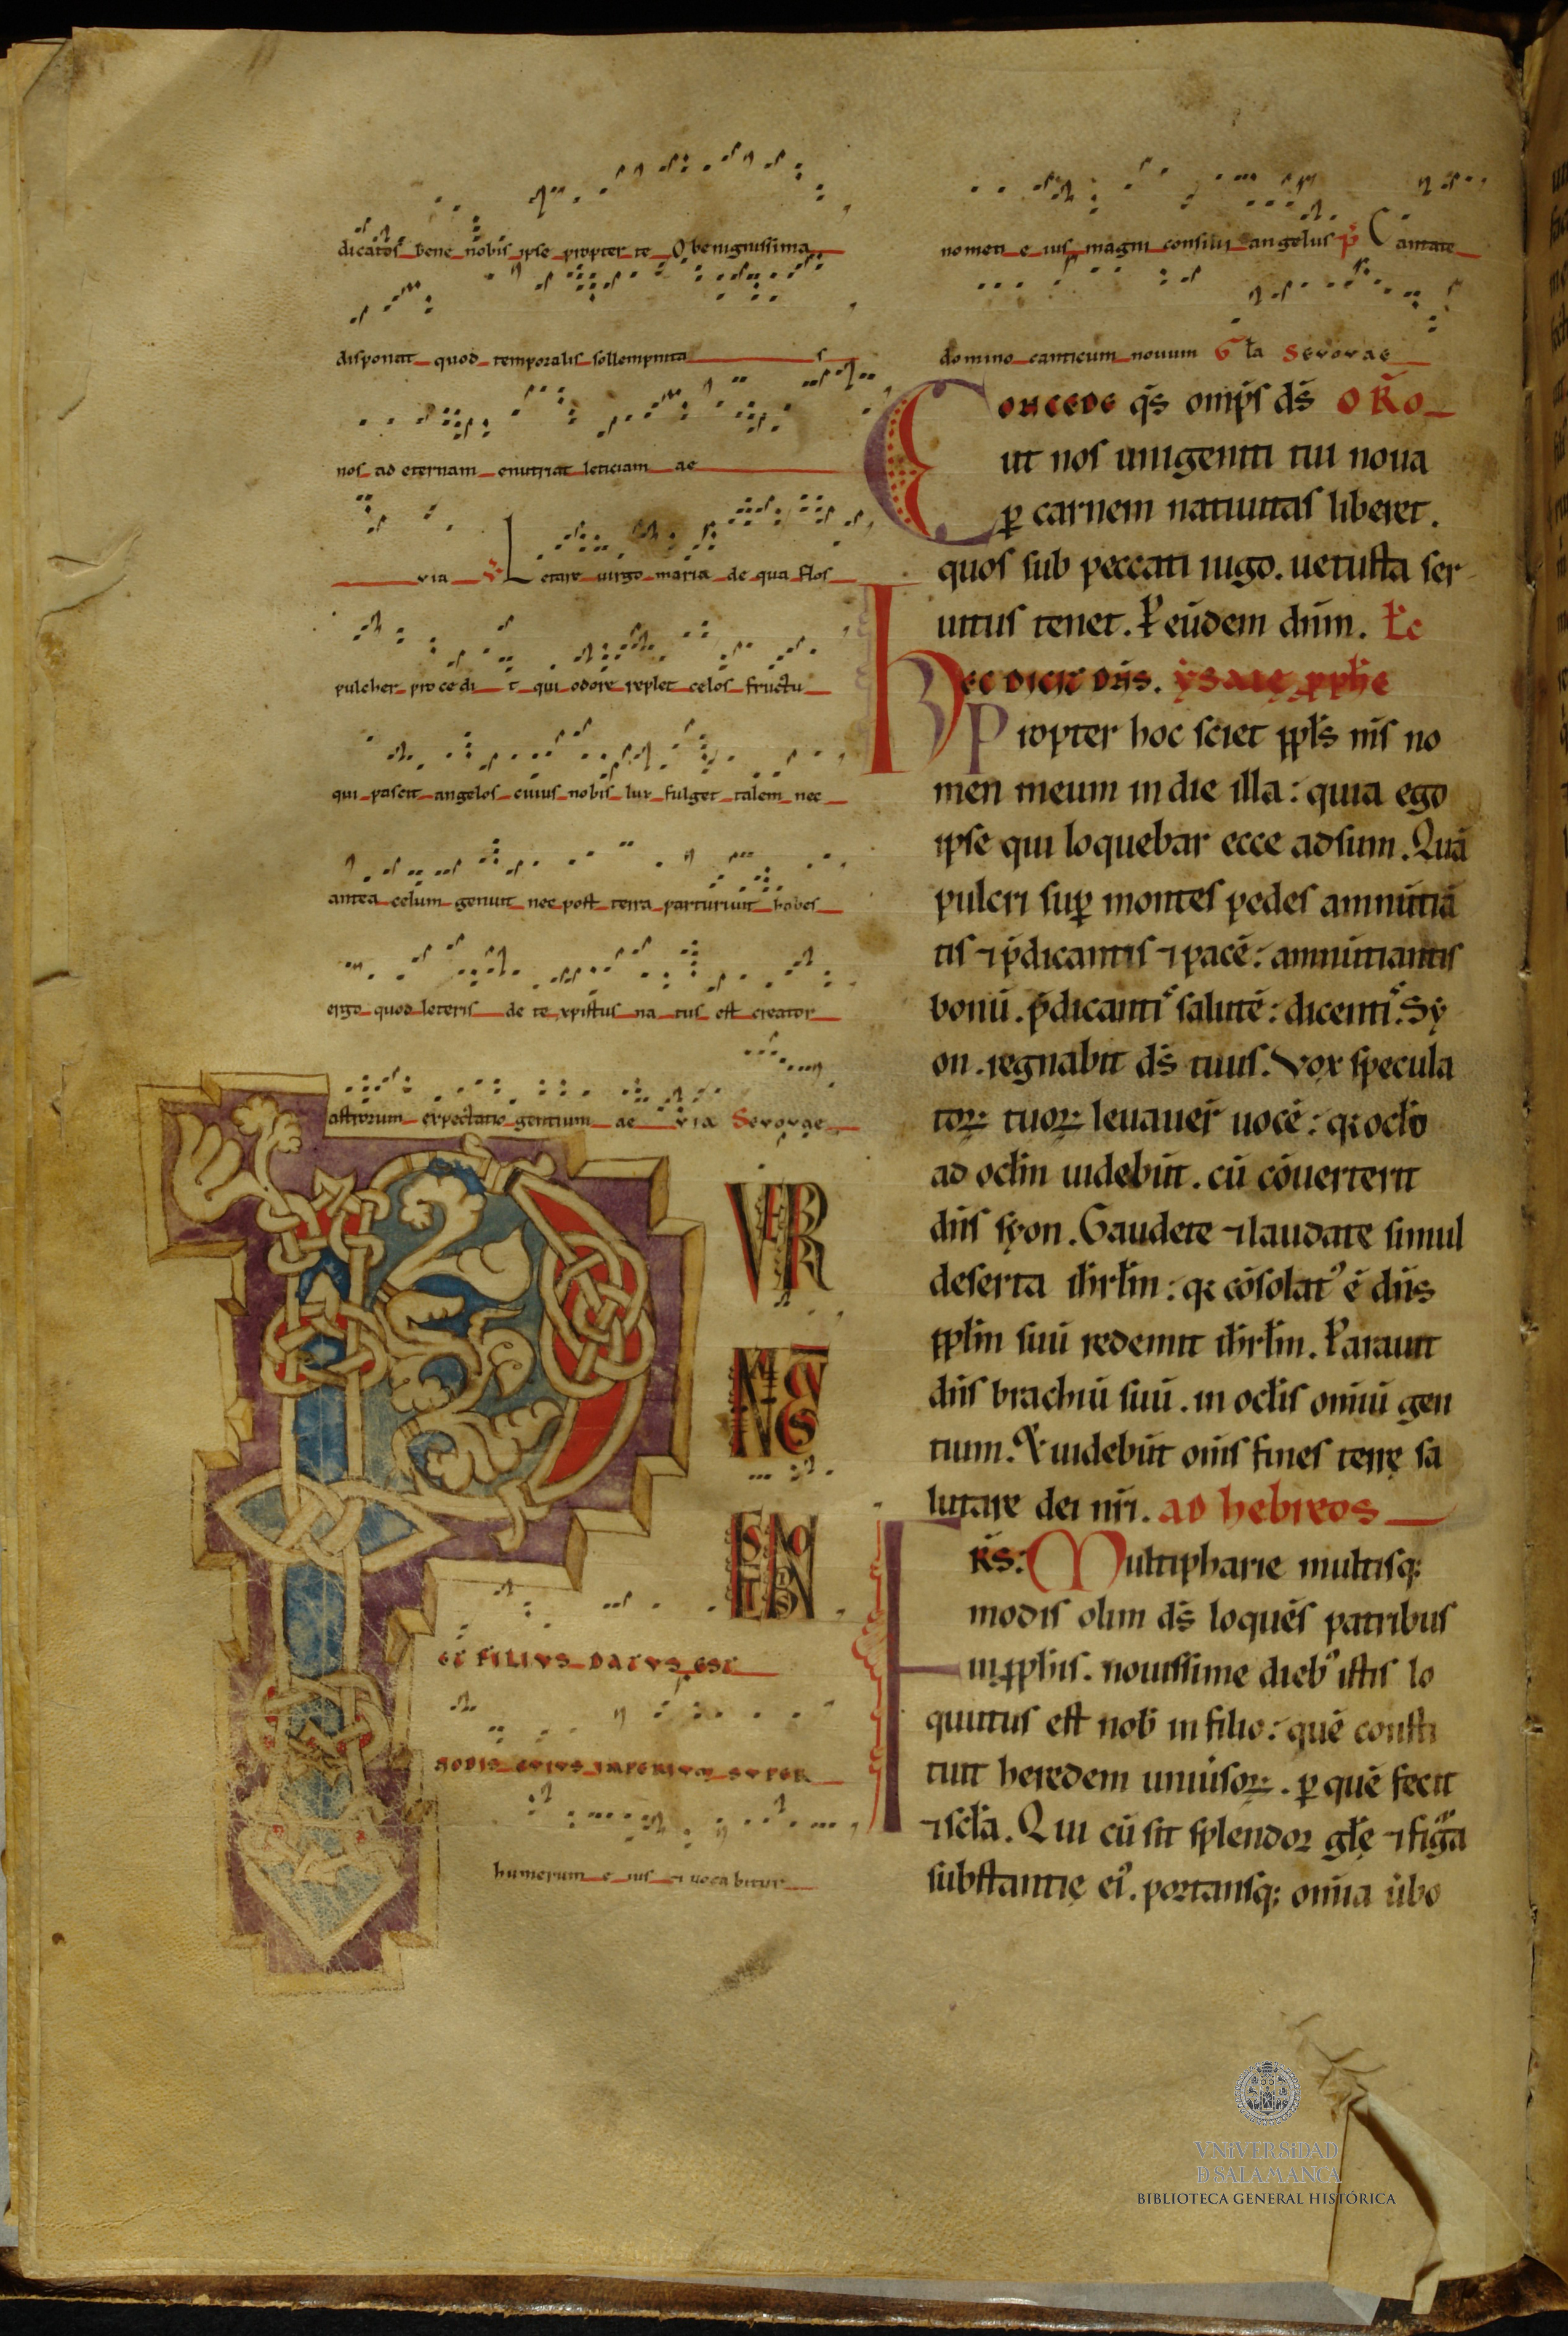 dicatos bene nobis ipse propter te O benignissima
disponat quod temporalis sollempnita s
nos ad eternam enutriat leticiam ae
via V Letare virgo maria de qua flos
pulcher procedi t qui odore replet celos fructu
qui pascit angelos cuius nobis lux fulget talem nec
antea celum genuit nec post terra parturiuit habes
ergo quod leteris de te xpistus na tus est creator
astrorum expectatio gentium ae via Sevovae
PVER
NATVS
EST NOBIS
ET FILIVS DATVS EST
NOBIS CVIVS IMPERIVM SVPER
humerum e ius et uoca bitur
nomen e ius magni consilii angelus p̄ Cantate
domino canticum nouum Gła Sevovae
Concede qs̄ omp̄s ds̄ OR̄O
ut nos unigeniti tui noua
ꝑ carnem natiuitas liberet.
quos sub peccati iugo. uetusta ser
uitus tenet. P eūdem dn̄m. Łc
Hec dicit dn̄s. ysaię ꝓphe
Propter hoc sciet ppłs m̄s no
men meum in die illa: quia ego
ipse qui loquebar ecce adsum. Quā
pulcri suꝑ montes pedes annūtiā
tis ⁊ p̄dicantis ⁊ pacē: annūtiantis
bonū. p̄dicantis salutē: dicentis. Sy
on. regnabit ds̄ tuus. Vox specula
toꝝ tuoꝝ leuauer̄ uocē: q; ocło
ad ocłm uidebūt. cū cōuerterit
dn̄s syon. Gaudete ⁊ laudate simul
deserta ihrłm: q; cōsolat᾿ ē dn̄s
ppłm suū redemit ihrłm. Parauit
dn̄s brachiū suū. in ocłis om̄iū gen
tium. & uidebūt om̄s fines terrę sa
lutare dei nr̄i. ad hebreos
FR̄S: Multipharie multisq;
modis olim ds̄ loquēs patribus
in ꝓphis. nouissime dieb᾿ istis lo
quutus est nob̄ in filio: quē consti
tuit heredem uniūsoꝝ. ꝑ quē fecit
⁊ scła. Qui cū sit splendor głę ⁊ figᵃa
substantię ei᾿. portansq; om̄ia ūbo
VNIVERSIDAD
D SALAMANCA
BIBLIOTECA GENERAL HISTÓRICA